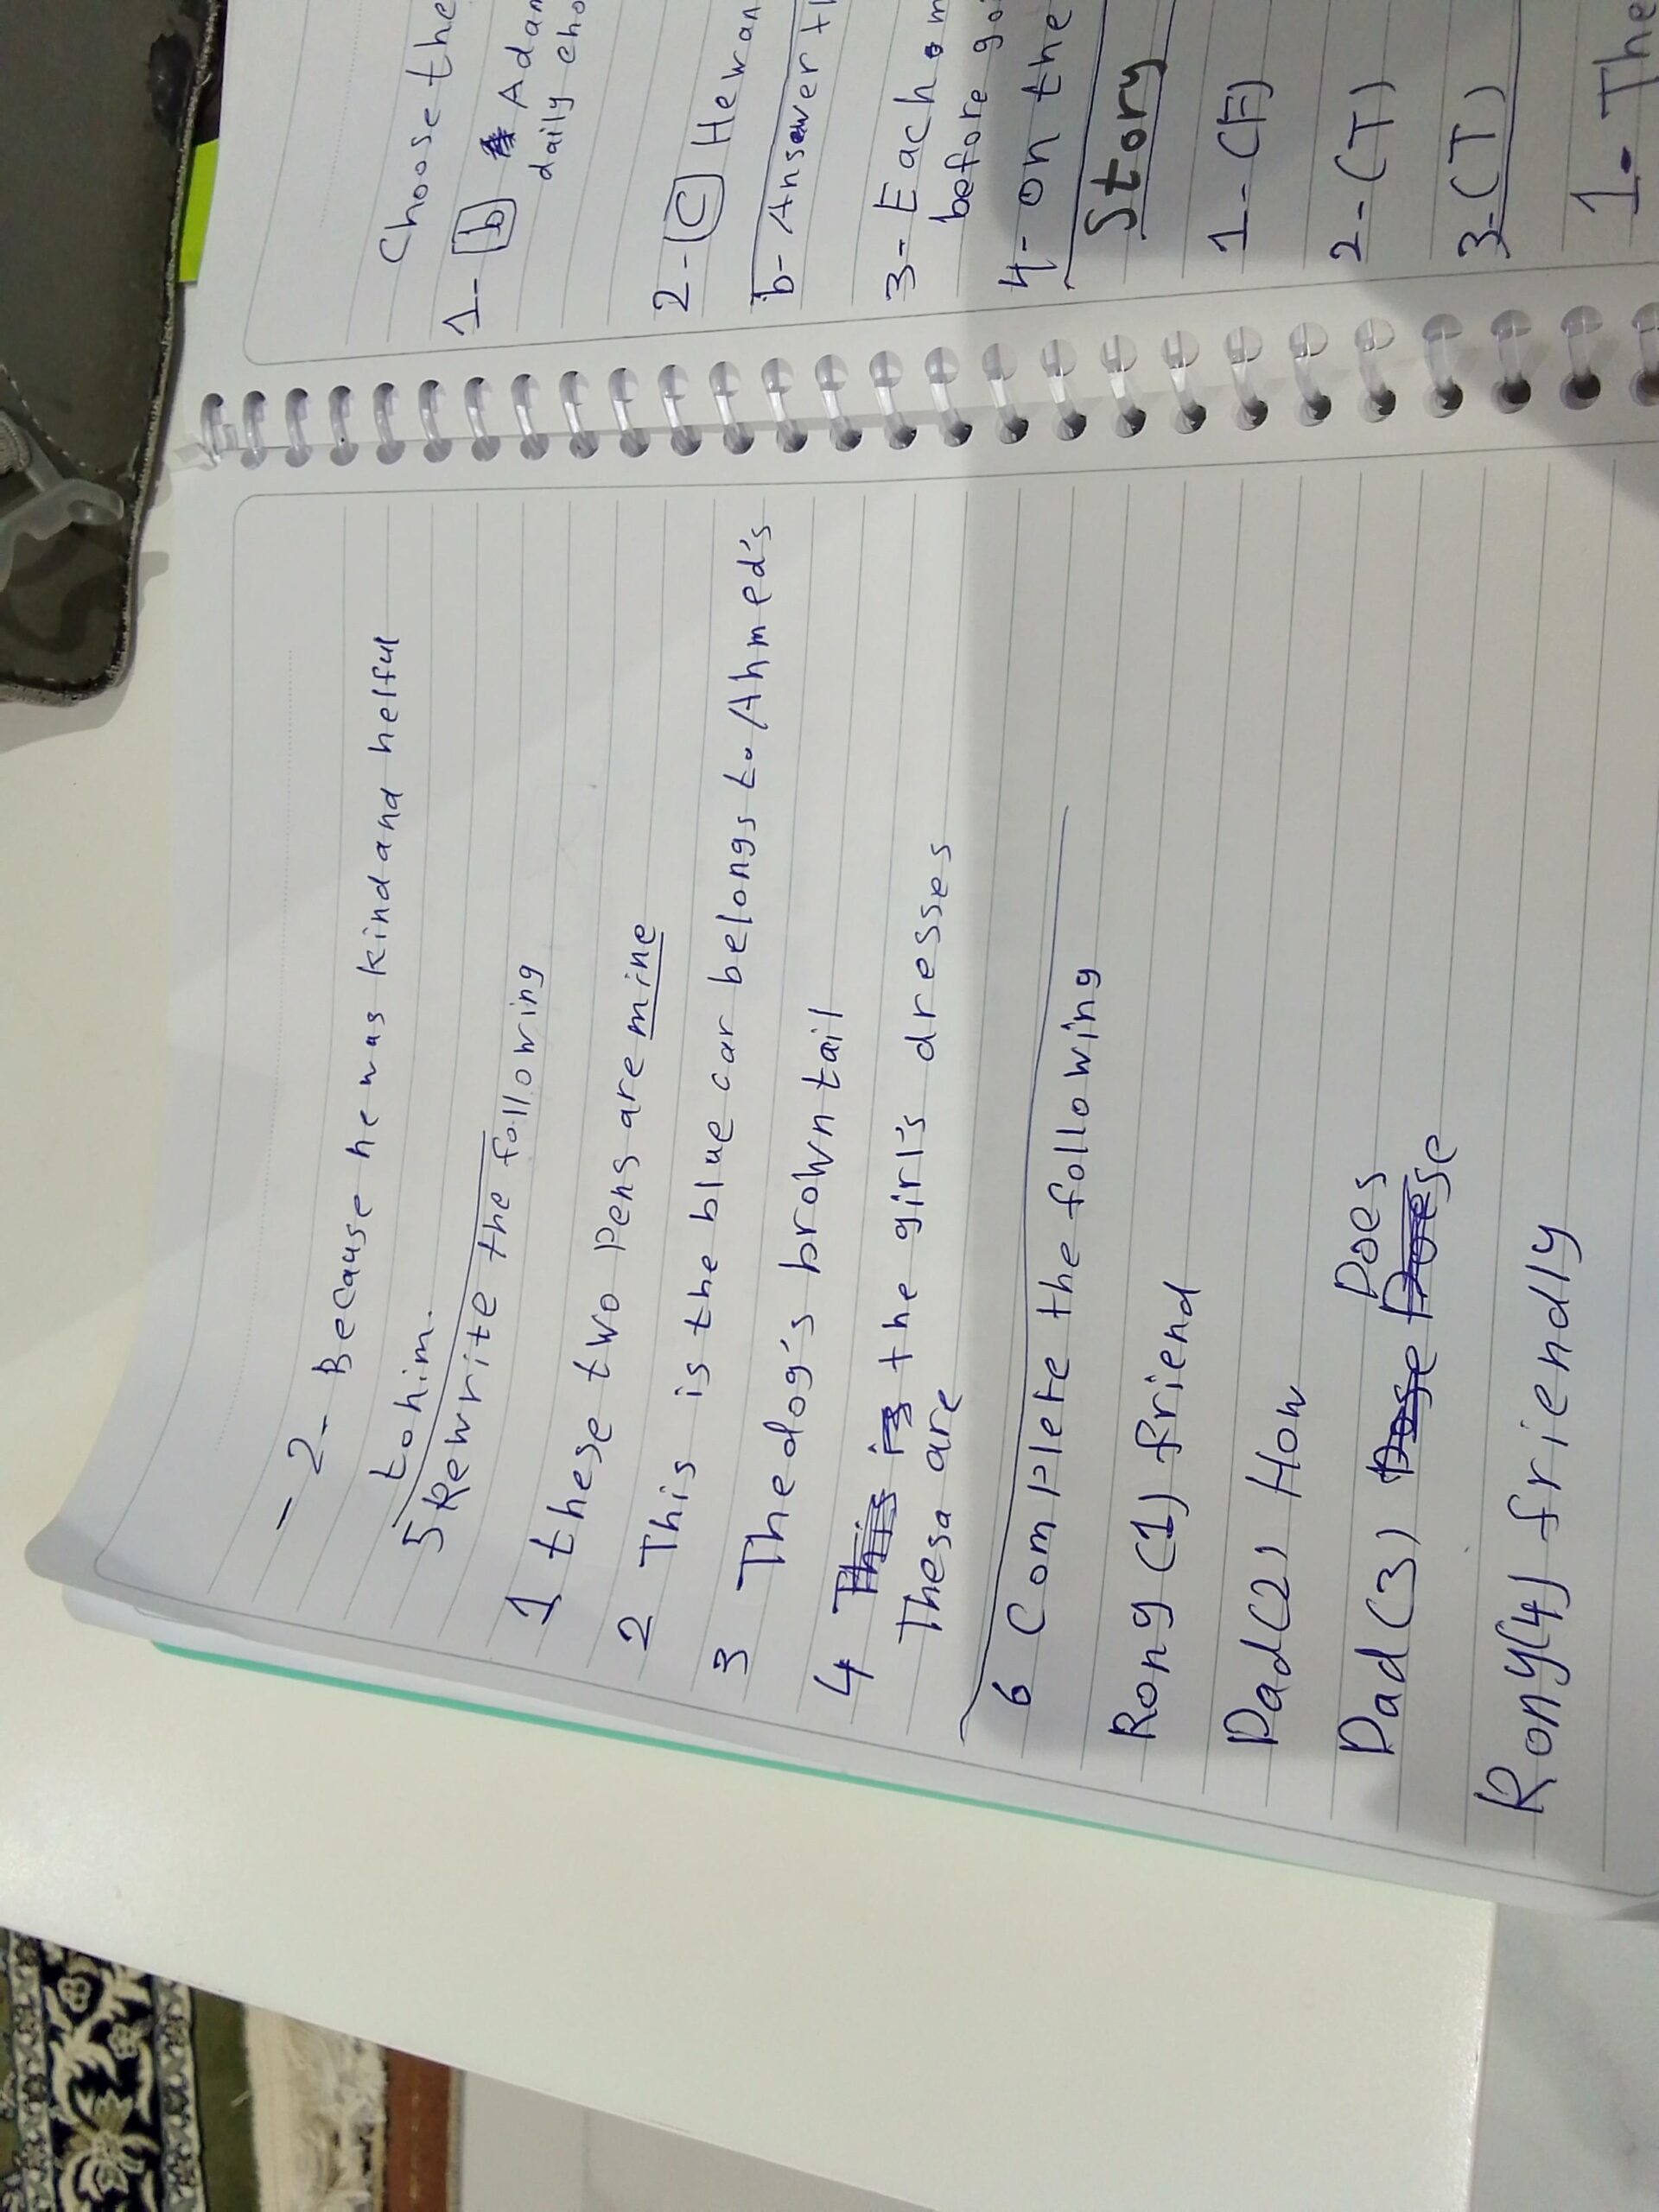 - 2- Because he was kind and helful
to him.
5 Rewrite the following
1 these two Pens are mine
2 This is the blue car belongs to Ahmed's
3 The dog's brown tail
4 This is the girl's dresses
Thesa are
6 Complete the following
Rony (1) friend
Dad (2) How
Does
Dad (3) Dose Doese
Rony (4) friendly
Choose the
1- b Adam
daily cho
2- C He wan
b- Answer th
3- Each m
before go
4- on the
Story
1- (F)
2- (T)
3- (T)
1- The